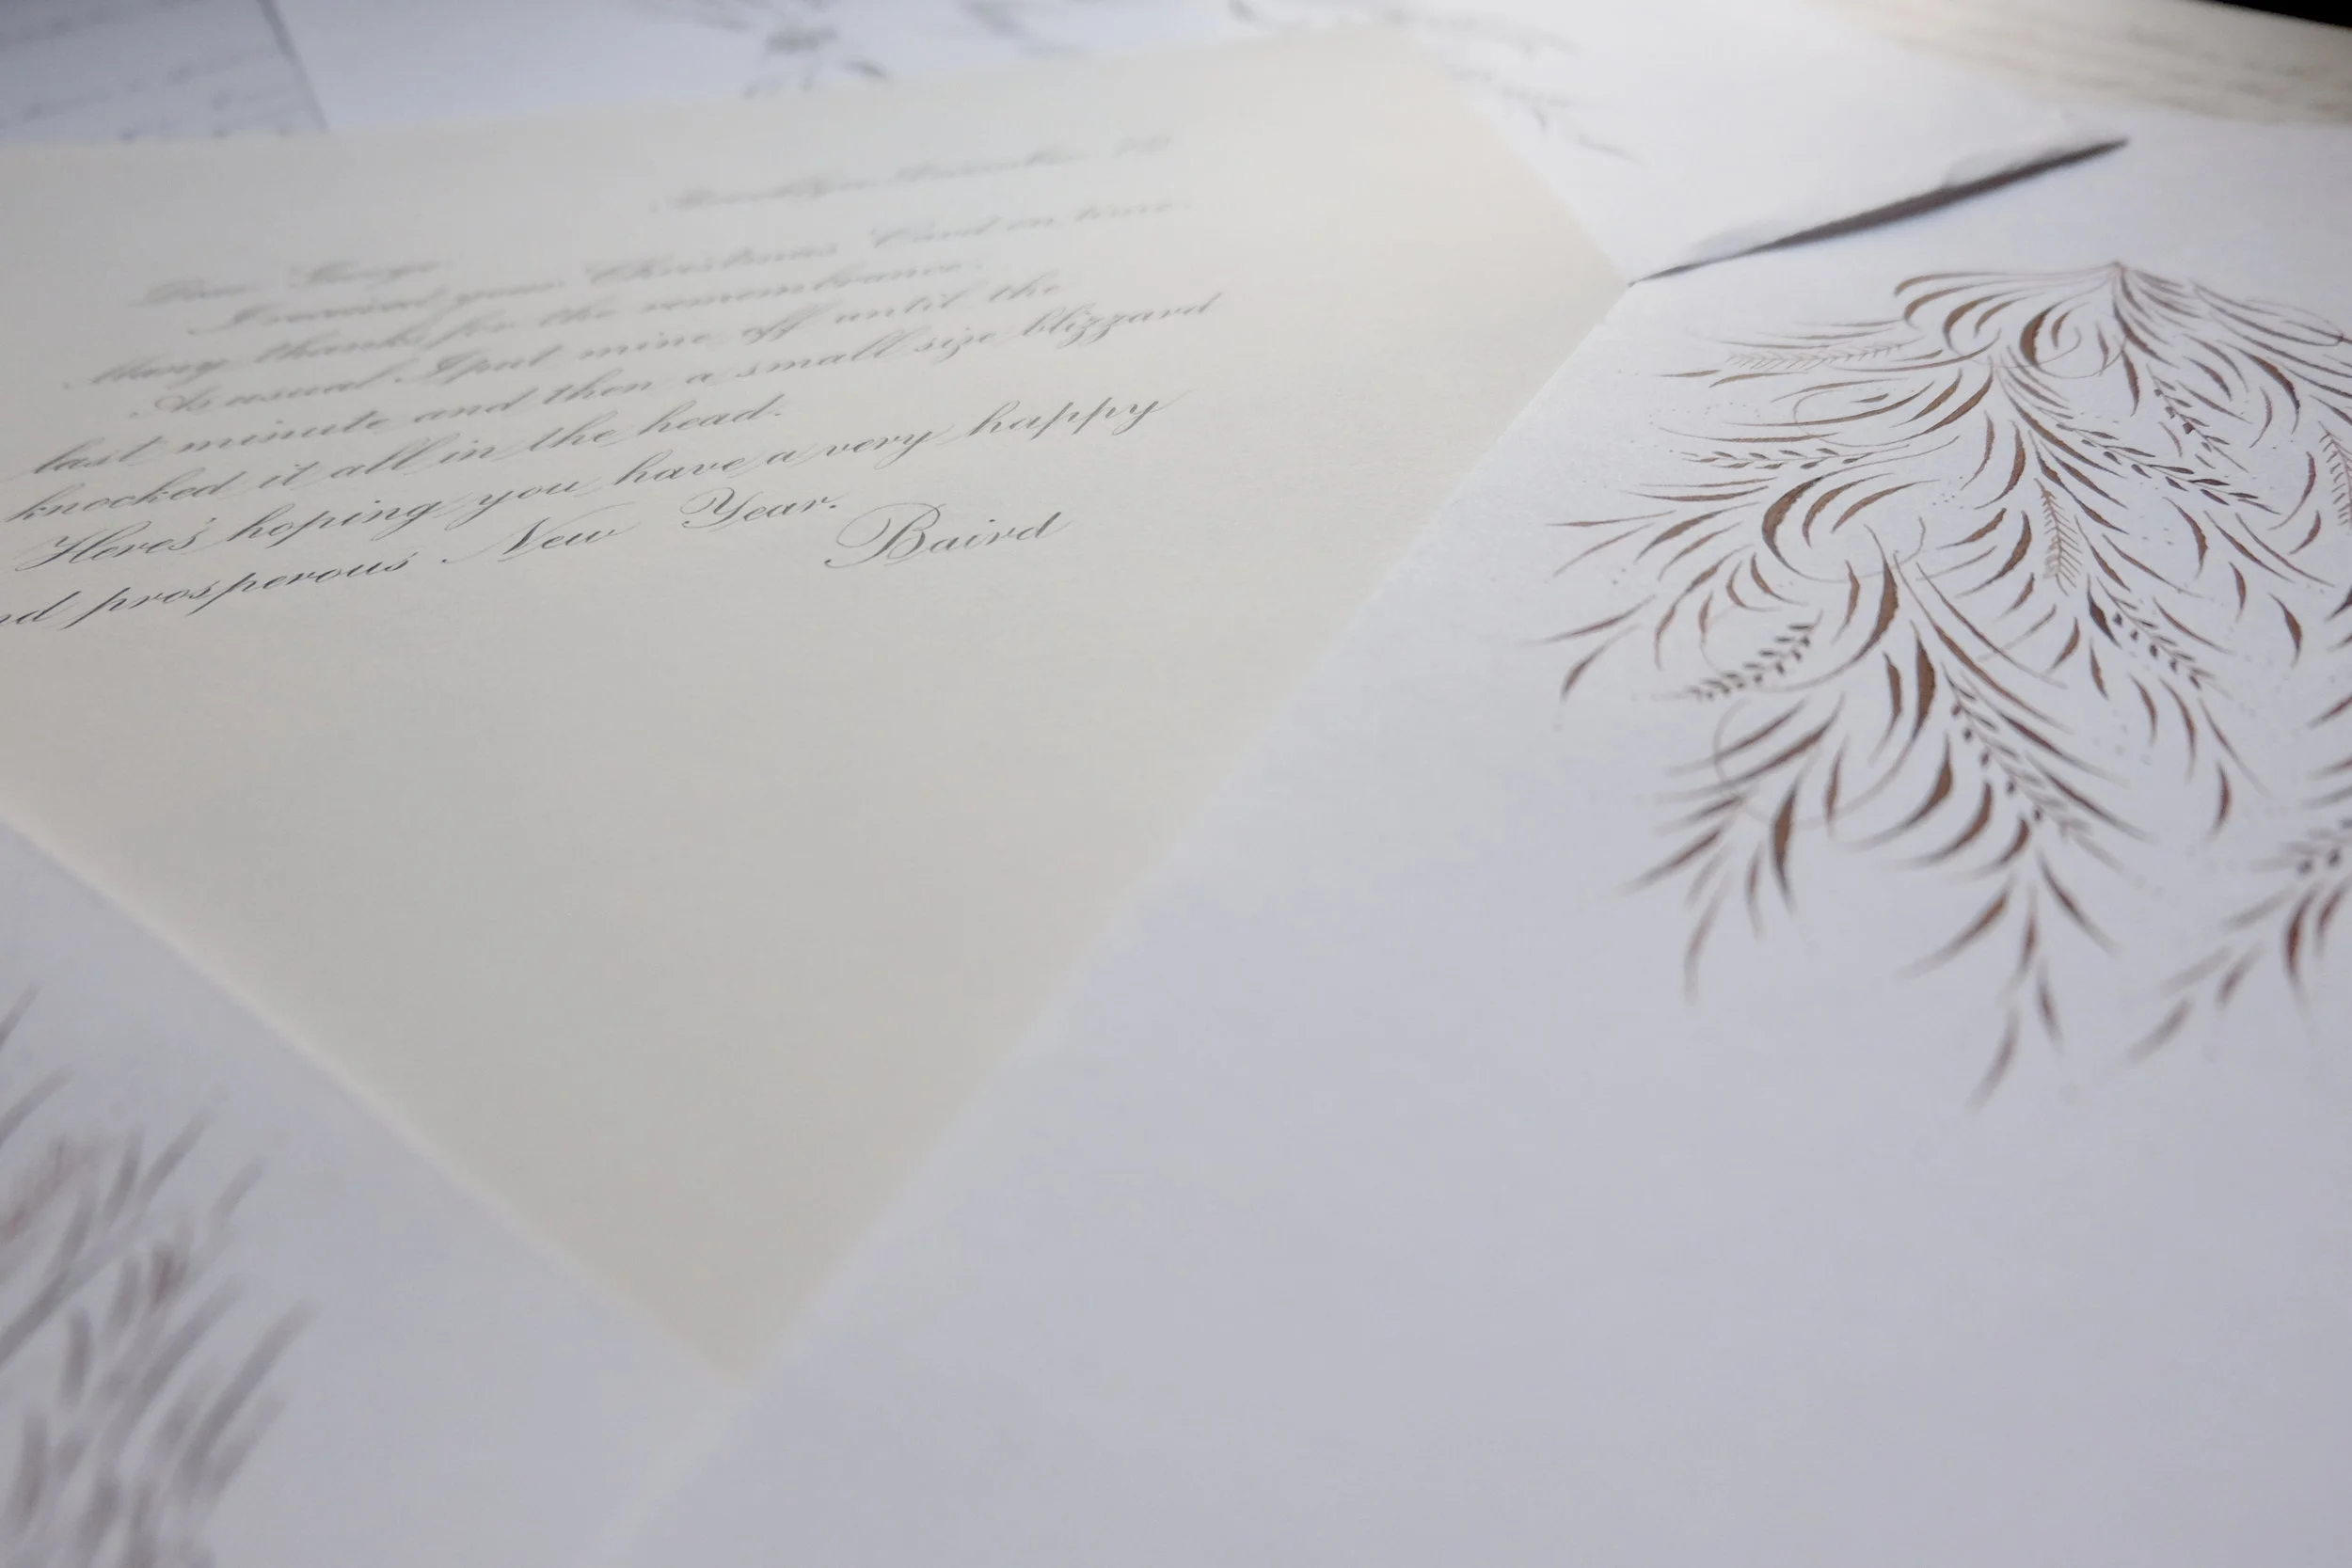 Brooklyn, December 29
Dear George
I received your Christmas Card on time.
Many thanks for the remembrance.
As usual I put mine off until the
last minute and then a small size blizzard
knocked it all in the head.
Here's hoping you have a very happy
nd prosperous New Year.
Baird